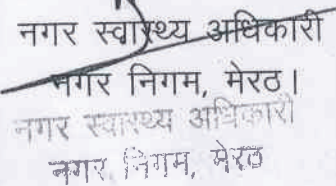 नगर स्वास्थ्य अधिकारी
नगर निगम, मेरठ।
नगर स्वास्थ्य अधिकारी
नगर निगम, मेरठ